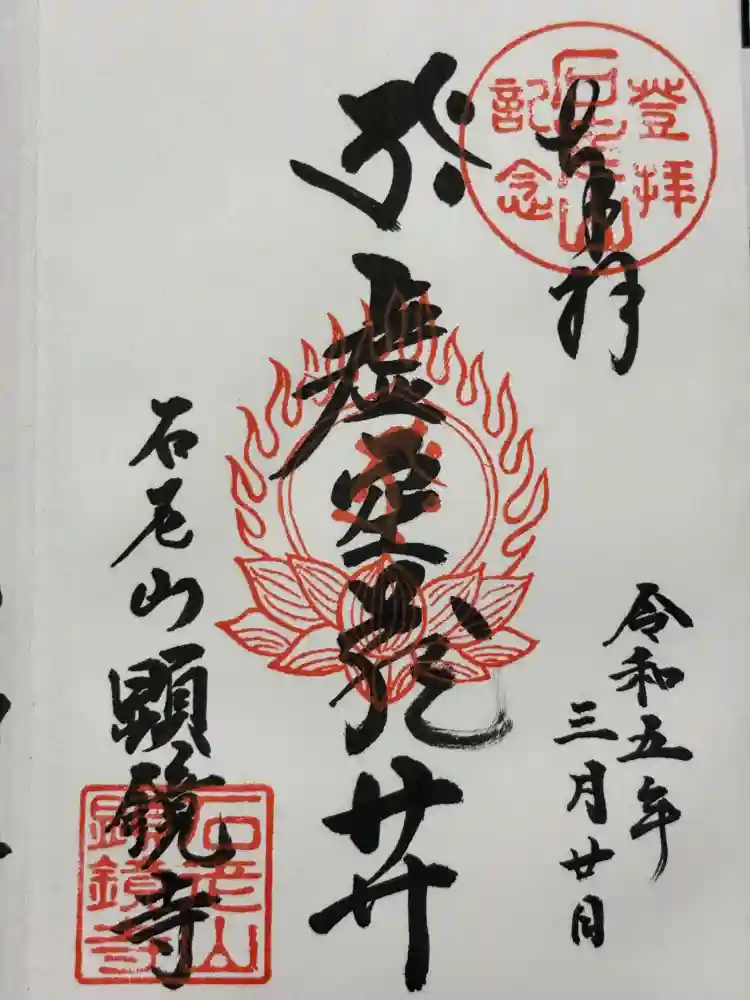 登拝
石老山
記念
奉拝
令和五年
三月廿日
虚空蔵𦬇
石老山 顕鏡寺
石老山
顕鏡寺